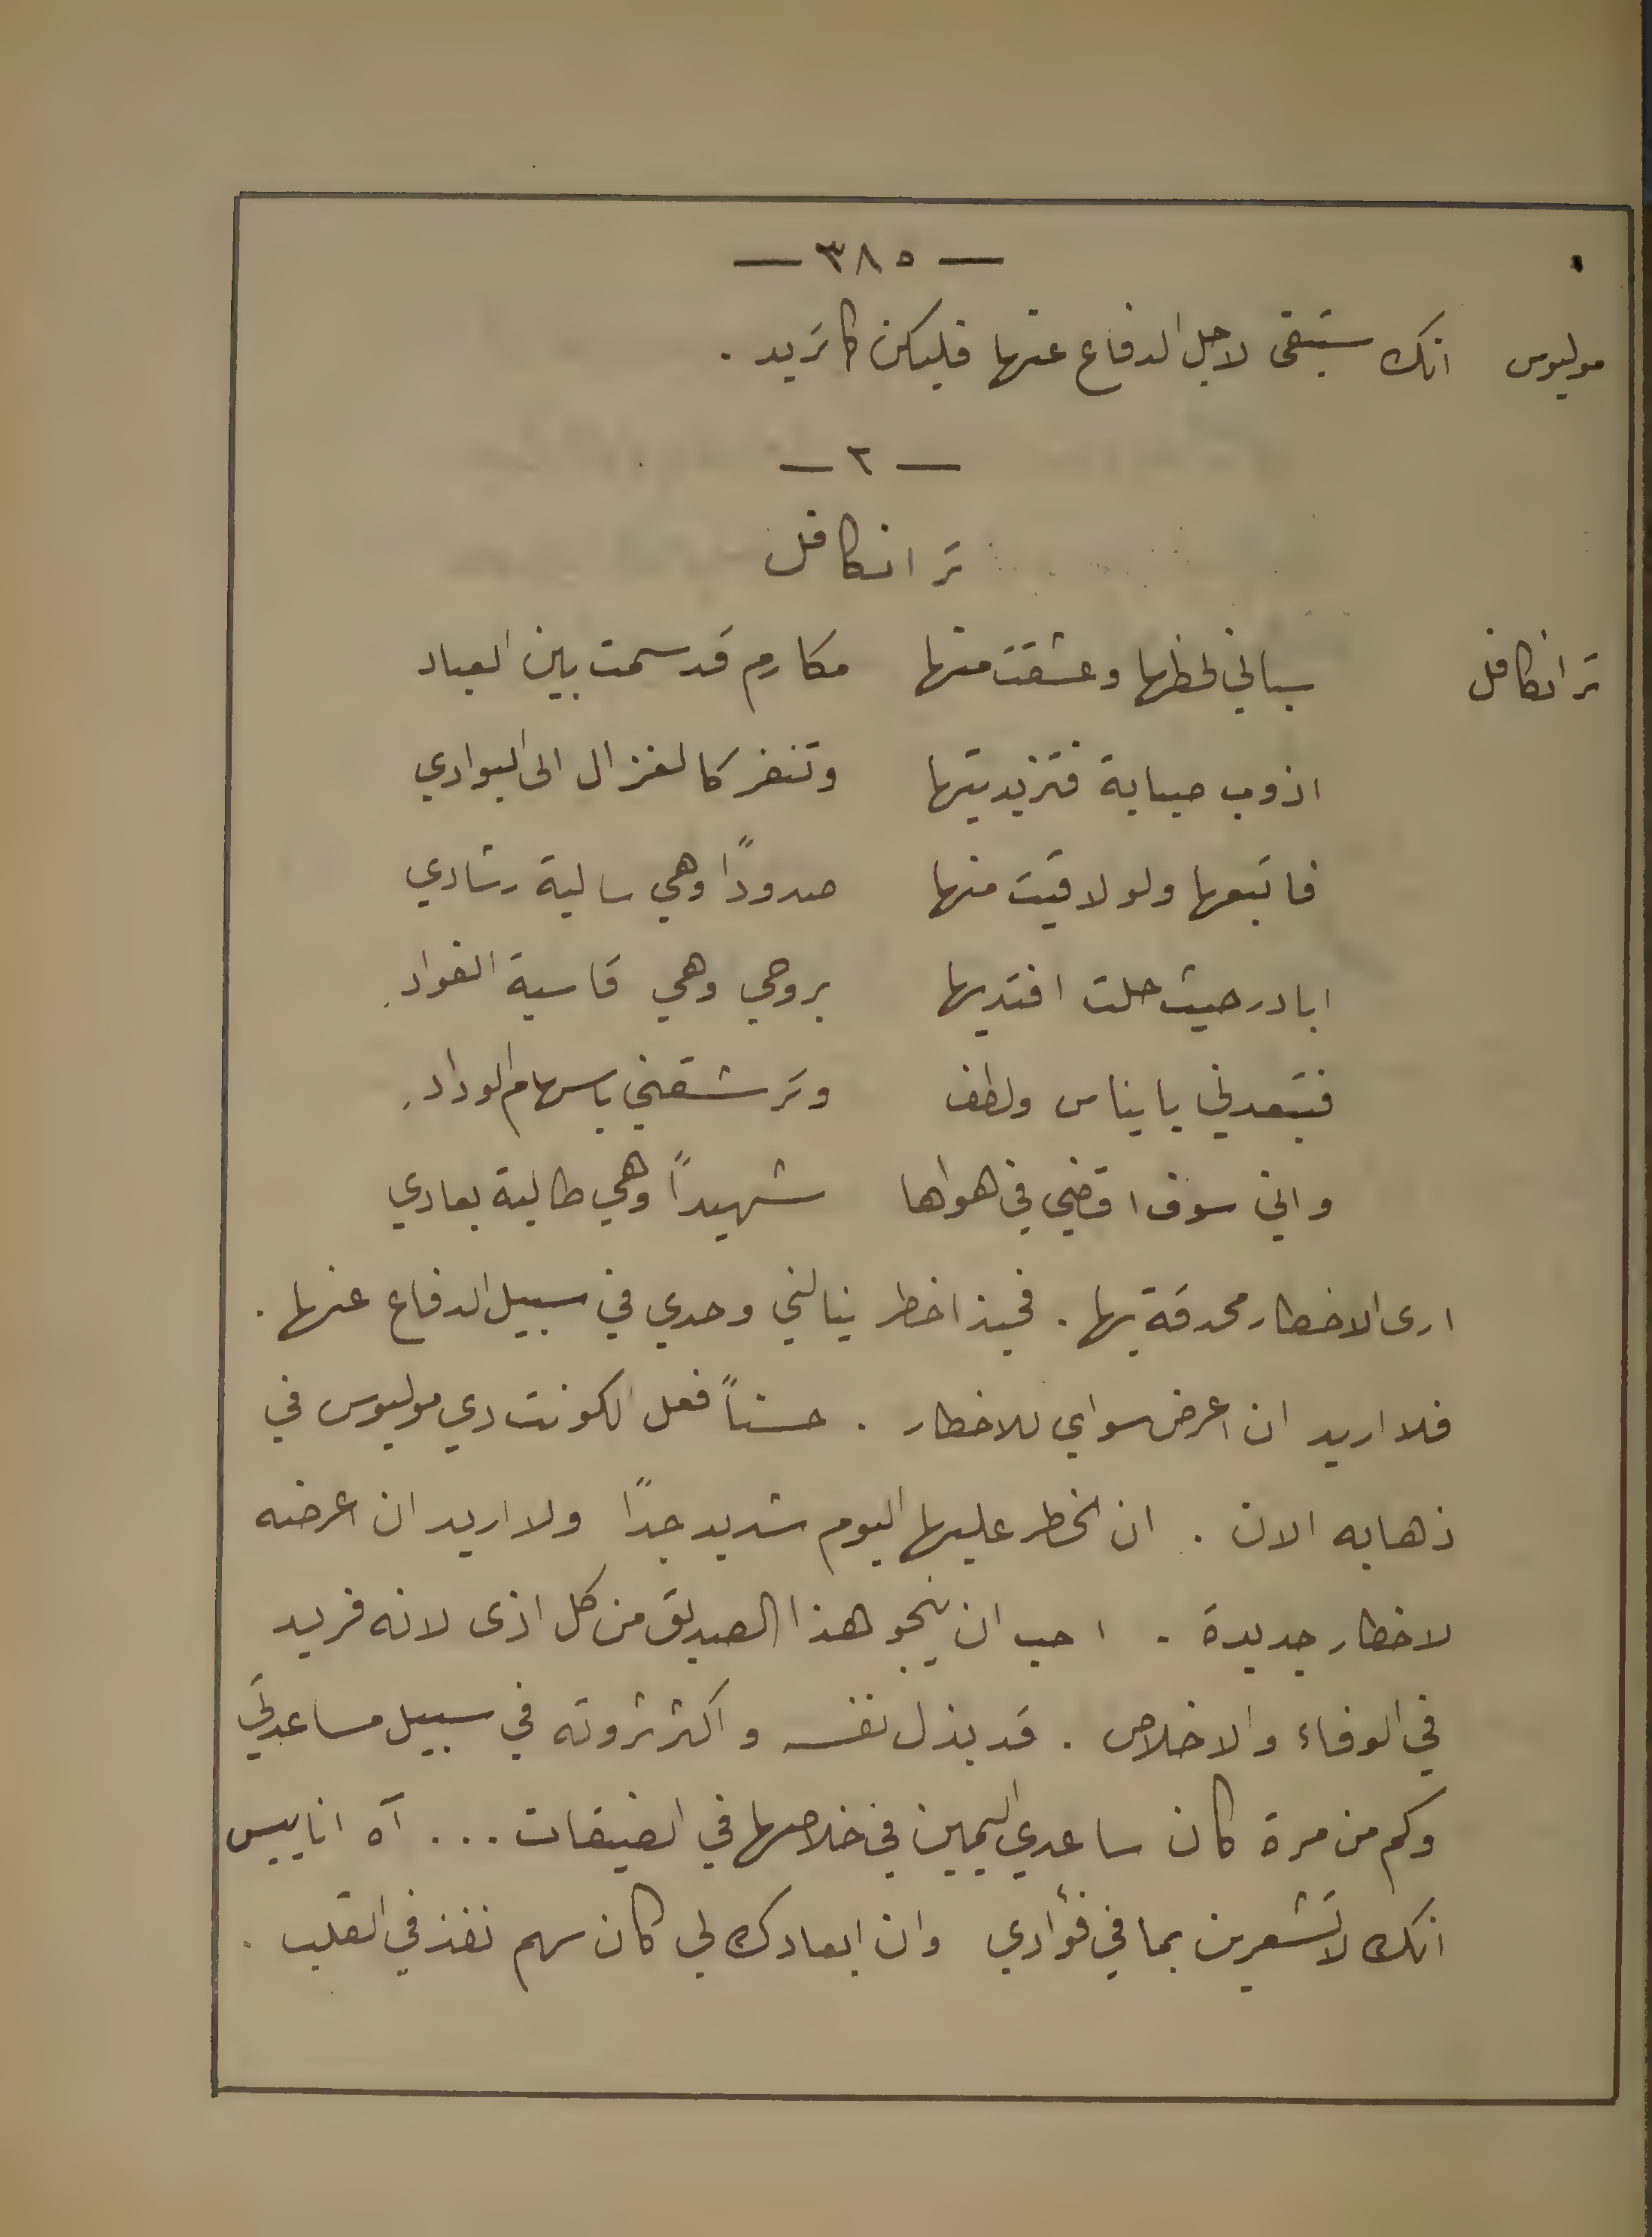 — ٣٨٥ —
موليوس انك ستبقى لاجل الدفاع عنها فليكن كما تريد .
— ٢ —
ترانكافل
ترانكافل سباني لحظها وعشقت منها مكارم قد سمت بين العباد
اذوب صبابة فتزيد تيها وتنفر كالغزال الى البوادي
فاتبعها ولو لاقيت منها صدودًا وهي سالبة رشادي
ابادر حيث حلت افتديها بروحي وهي قاسية الفواد
فتبعدني بايناس ولطف وترشقني باسهام الوداد
واني سوف اقضي في هواها شهيدًا وهي طالبة بعادي
ارى الاخطار محدقة بها . فحبذا خطر ينالني وحدي في سبيل الدفاع عنها .
فلا اريد ان اعرض سواي للاخطار . حسنًا فعل الكونت دي موليوس في
ذهابه الان . ان الخطر عليها اليوم شديد جدًا ولا اريد ان اعرضه
لاخطار جديدة . احب ان ينجو هذا الصديق من كل اذى لانه فريد
في الوفاء والاخلاص . قد بذل نفسه واكثر ثروته في سبيل مساعدتي
وكم من مرة كان ساعدي اليمين في خلاصها في الضيقات ... آه اناييس
انك لا تشعرين بما في فؤادي وان ابعادك لي كان سهم نفذ في القلب .